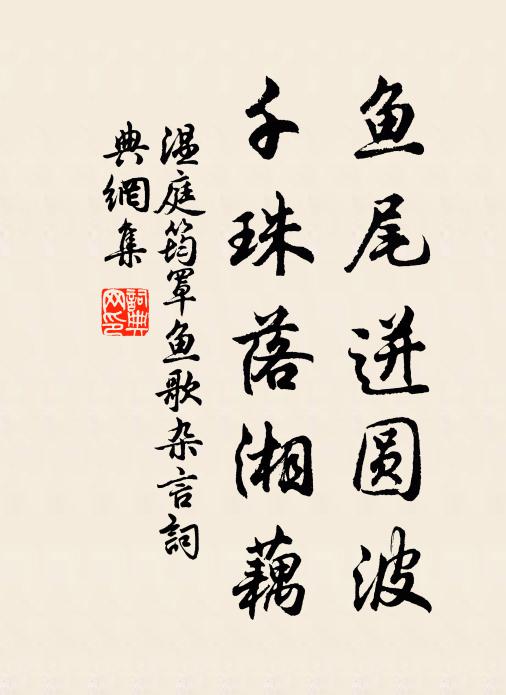 鱼尾迸圆波
千珠落湘藕
温庭筠罩鱼歌杂言詞
典網集
詞典网印